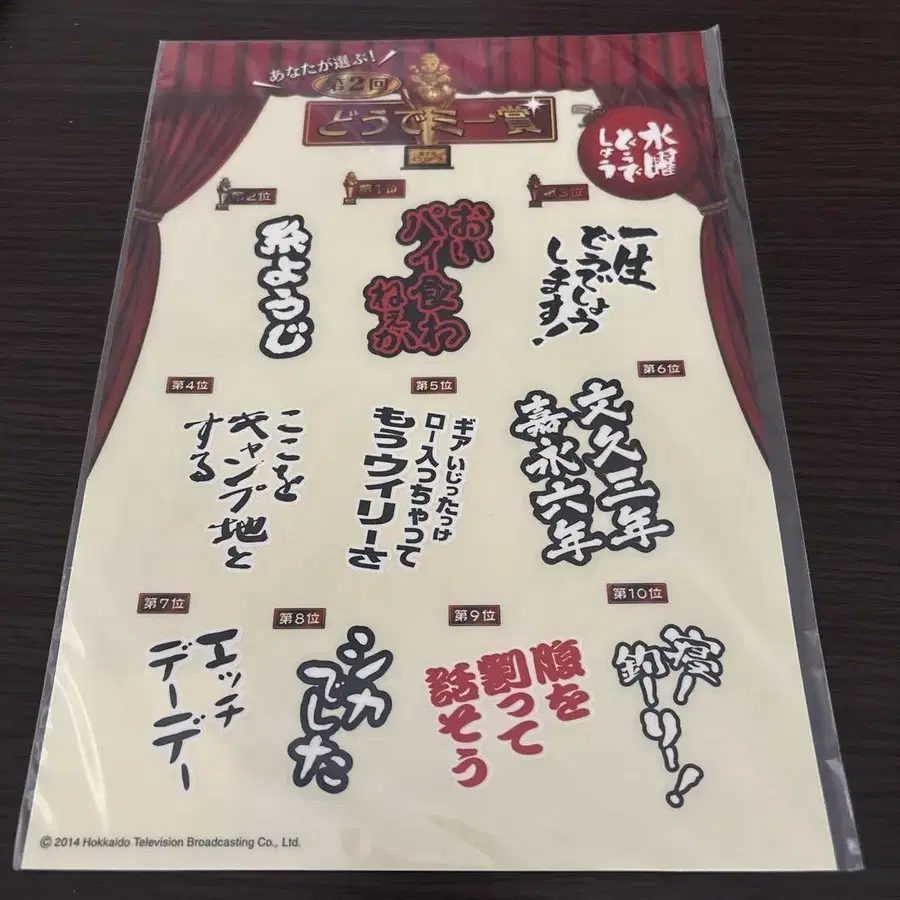 あなたが選ぶ!
第2回
どうでミー賞
水曜
どうで
しょう
第2位
糸ようじ
第1位
おい
パイ食わ
ねぇか
第3位
一生
どうでしょう
します!
第4位
ここを
キャンプ地と
する
第5位
ギアいじったっけ
ロー入っちゃって
もうウィリーさ
第6位
文久三年
嘉永六年
第7位
エッチ
デーデー
第8位
シカ
でした
第9位
腹を
割って
話そう
第10位
寝ー
釣ーリー!
© 2014 Hokkaido Television Broadcasting Co., Ltd.